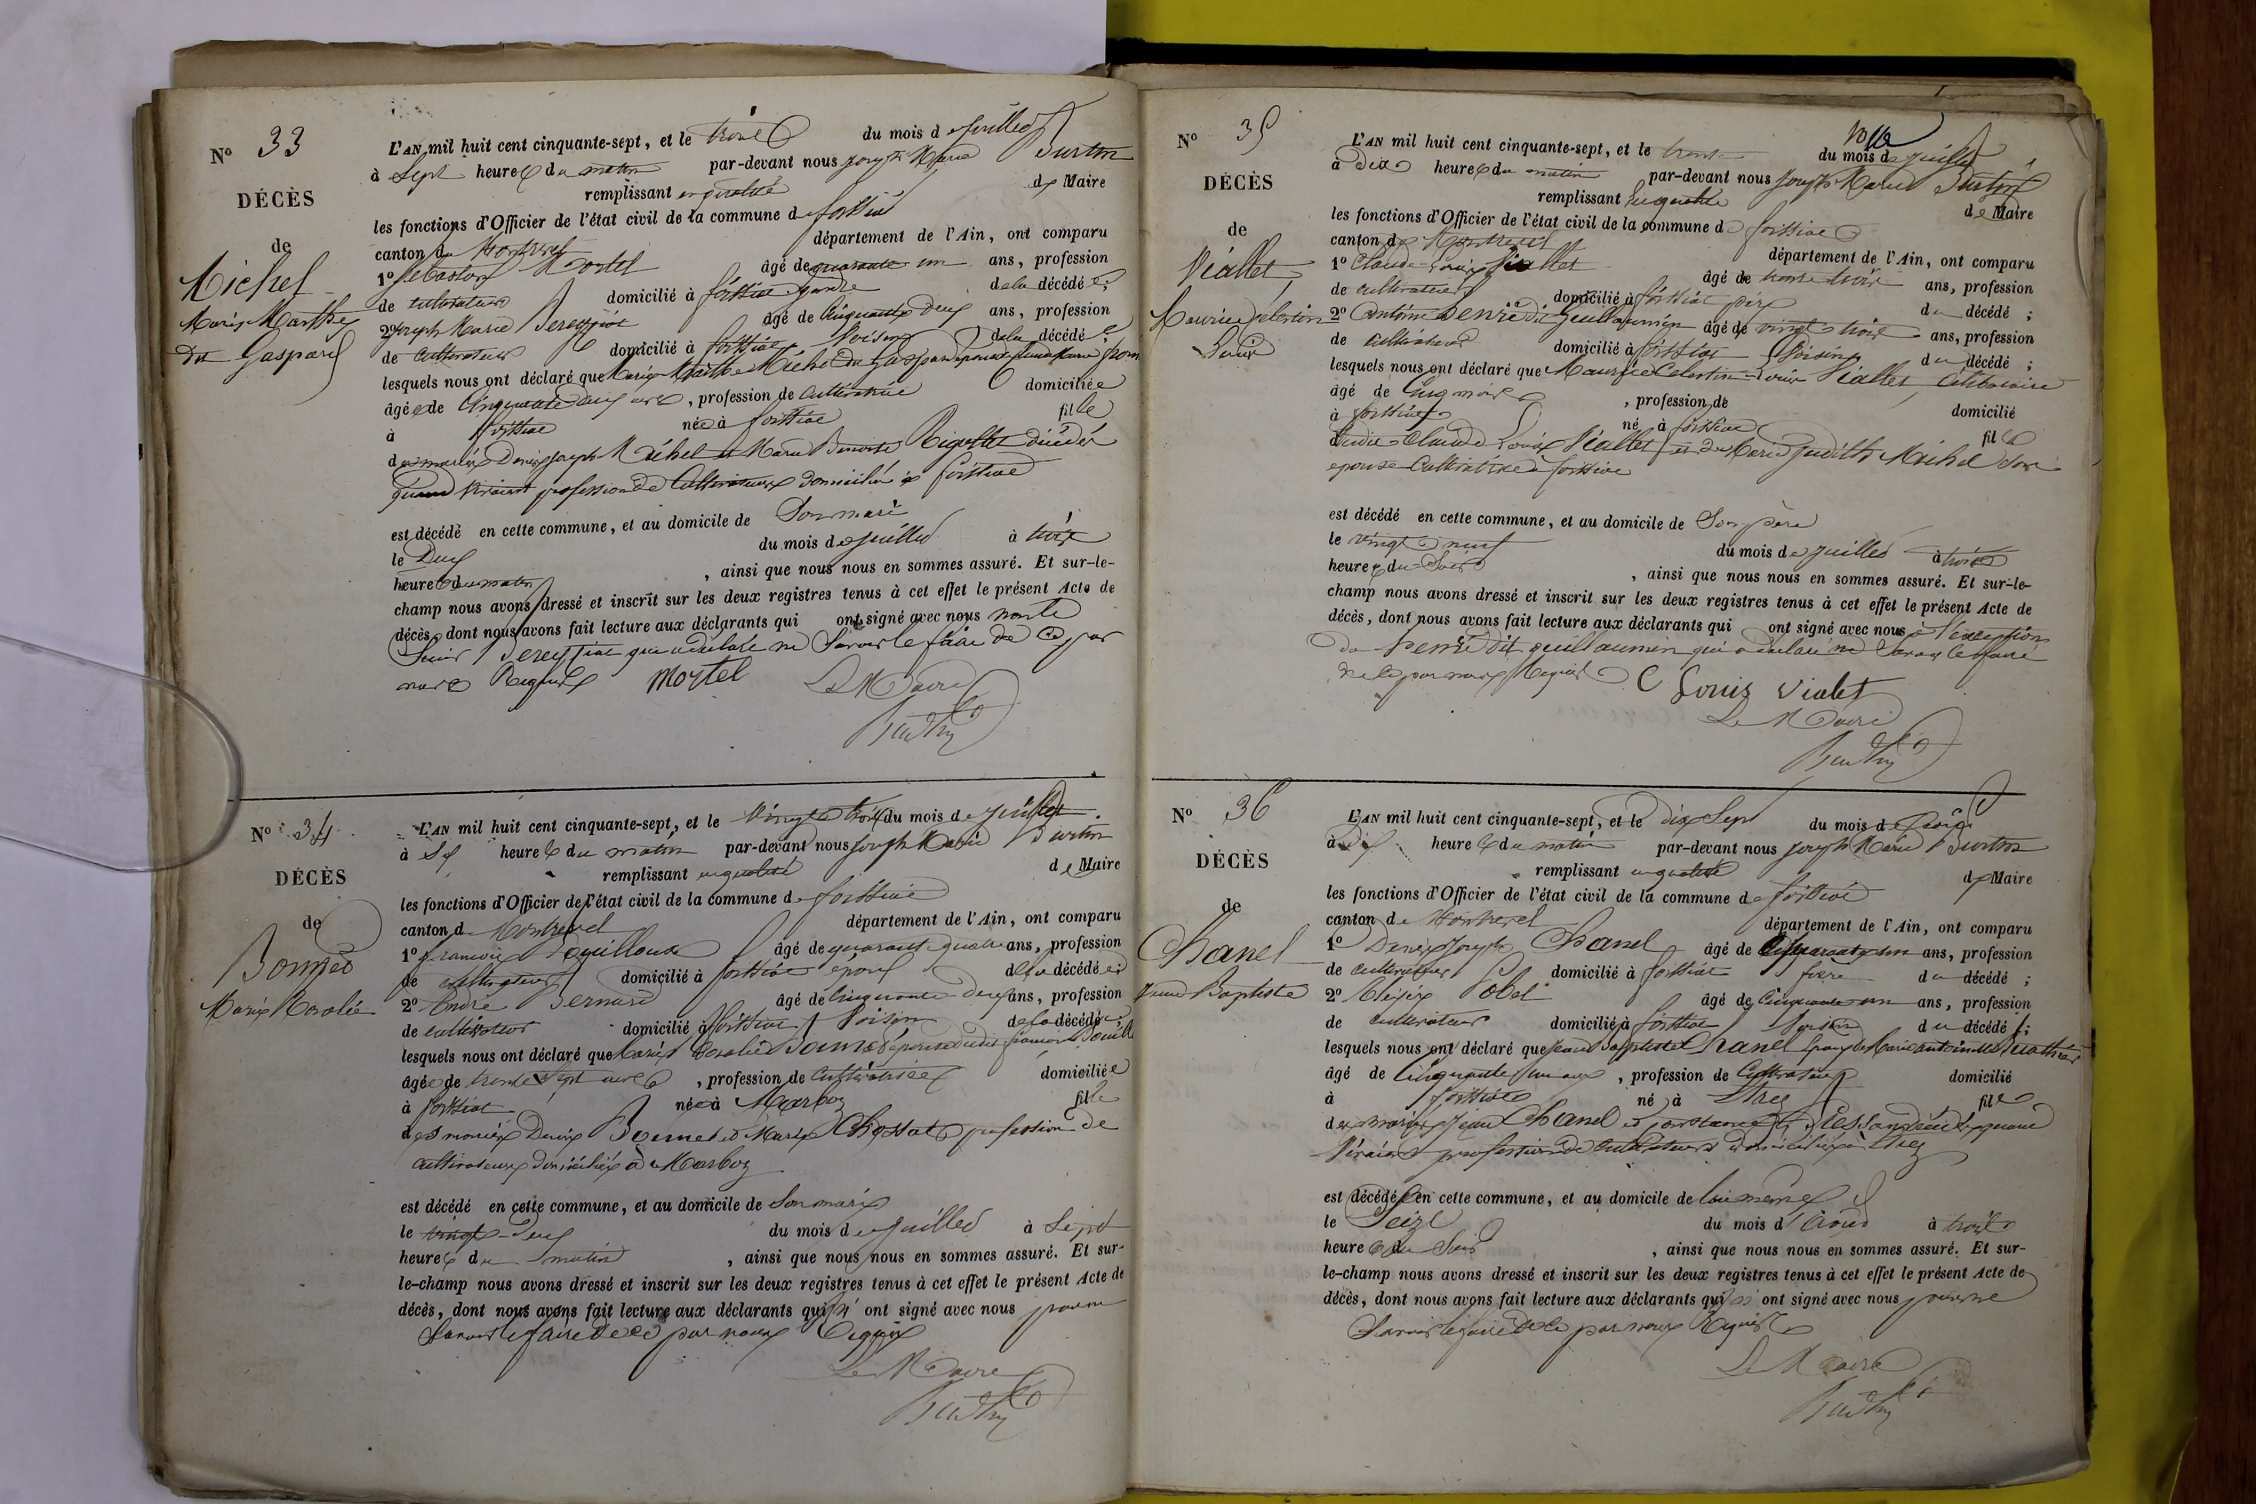 N° 33
DÉCÈS
de
Michel
Marie Marthe
dit Gaspard
L'AN mil huit cent cinquante-sept, et le trois du mois de juillet
à Sept heures du matin par-devant nous joseph Marie Burtin
remplissant en qualité de Maire
les fonctions d'Officier de l'état civil de la commune de
canton de Montrevel département de l'Ain, ont comparu
1° Mortel âgé de quarante un ans, profession
de cultivateur domicilié à gendre de la décédée;
2° joseph Marie âgé de Cinquante deux ans, profession
de cultivateur domicilié à Voisin de la décédée
lesquels nous ont déclaré que Marie Marthe Michel dit Gaspard épouse
âgée de Cinquante deux ans, profession de cultivatrice domiciliée
à née à fille
des mariés Denis joseph Michel et Marie décédés
quand vivaient profession de Cultivateurs domiciliés à
est décédé en cette commune, et au domicile de Son mari
le Deux du mois de juillet à trois
heures du matin, ainsi que nous nous en sommes assuré. Et sur-le-
champ nous avons dressé et inscrit sur les deux registres tenus à cet effet le présent Acte de
décès, dont nous avons fait lecture aux déclarants qui ont signé avec nous
qui a déclaré ne Savoir le faire de ce par
nous Requis Mortel Le Maire
Burtin
N° 34
DÉCÈS
de
Marie
L'AN mil huit cent cinquante-sept, et le Vingt trois du mois de juillet
à Six heures du matin par-devant nous joseph Marie Burtin
remplissant en qualité de Maire
les fonctions d'Officier de l'état civil de la commune de
canton de Montrevel département de l'Ain, ont comparu
1° françois âgé de quarante quatre ans, profession
de cultivateur domicilié à époux de la décédée
2° André Bernard âgé de Cinquante deux ans, profession
de cultivateur domicilié à Voisin de la décédée
lesquels nous ont déclaré que Marie épouse dudit françois
âgée de trente Sept ans, profession de Cultivatrice domiciliée
à née à Marboz fille
des mariés Denis et Marie profession de
cultivateurs domiciliés à Marboz
est décédé en cette commune, et au domicile de Son mari
le vingt Deux du mois de juillet à Sept
heures du matin, ainsi que nous nous en sommes assuré. Et sur-
le-champ nous avons dressé et inscrit sur les deux registres tenus à cet effet le présent Acte de
décès, dont nous avons fait lecture aux déclarants qui n'ont signé avec nous pour ne
Savoir le faire de ce par nous Requis
Le Maire
Burtin
N° 35
DÉCÈS
de
Viallet
Maurice Celestin
Louis
L'AN mil huit cent cinquante-sept, et le trente du mois de juillet
à Dix heures du matin par-devant nous joseph Marie Burtin
remplissant en qualité de Maire
les fonctions d'Officier de l'état civil de la commune de
canton de Montrevel département de l'Ain, ont comparu
1° Claude Louis Viallet âgé de trente trois ans, profession
de cultivateur domicilié à père du décédé;
2° Antoine dit Guillaumin âgé de vingt trois ans, profession
de cultivateur domicilié à Voisin du décédé;
lesquels nous ont déclaré que Maurice Celestin Louis Viallet, Célibataire
âgé de Cinq mois, profession de domicilié
à né à fils
dudit Claude Louis Viallet et de Marie judith Michel Son
épouse Cultivatrice à
est décédé en cette commune, et au domicile de Son père
le vingt neuf du mois de juillet à trois
heures du Soir, ainsi que nous nous en sommes assuré. Et sur-le-
champ nous avons dressé et inscrit sur les deux registres tenus à cet effet le présent Acte de
décès, dont nous avons fait lecture aux déclarants qui ont signé avec nous à l'exception
du dit guillaumin qui a déclaré ne Savoir le faire
de ce par nous Requis C Louis vialet
Le Maire
Burtin
N° 36
DÉCÈS
de
Chanel
Jean Baptiste
L'AN mil huit cent cinquante-sept, et le dix Sept du mois d'Août
à Dix heures du matin par-devant nous joseph Marie Burtin
remplissant en qualité de Maire
les fonctions d'Officier de l'état civil de la commune de
canton de Montrevel département de l'Ain, ont comparu
1° Denis Joseph Chanel âgé de ans, profession
de cultivateur domicilié à frère du décédé;
2° Pobel âgé de Cinquante un ans, profession
de cultivateur domicilié à du décédé;
lesquels nous ont déclaré que jean baptiste Chanel époux de Marie antoinette
âgé de Cinquante ans, profession de Cultivateur domicilié
à né à fils
des mariés Jean Chanel et décédés quand
Vivaient profession de Cultivateurs domiciliés à
est décédé en cette commune, et au domicile de lui même
le Seize du mois d'Août à trois
heures du Soir, ainsi que nous nous en sommes assuré. Et sur-
le-champ nous avons dressé et inscrit sur les deux registres tenus à cet effet le présent Acte de
décès, dont nous avons fait lecture aux déclarants qui n'ont signé avec nous pour ne
Savoir le faire de ce par nous Requis
Le Maire
Burtin